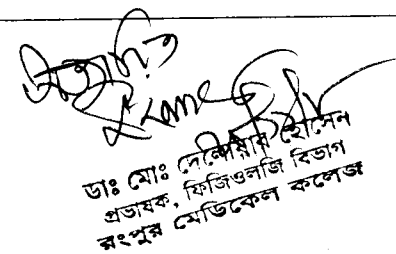 সত্যায়িত
ডাঃ মোঃ দেলোয়ার হোসেন
প্রভাষক, ফিজিওলজি বিভাগ
রংপুর মেডিকেল কলেজ